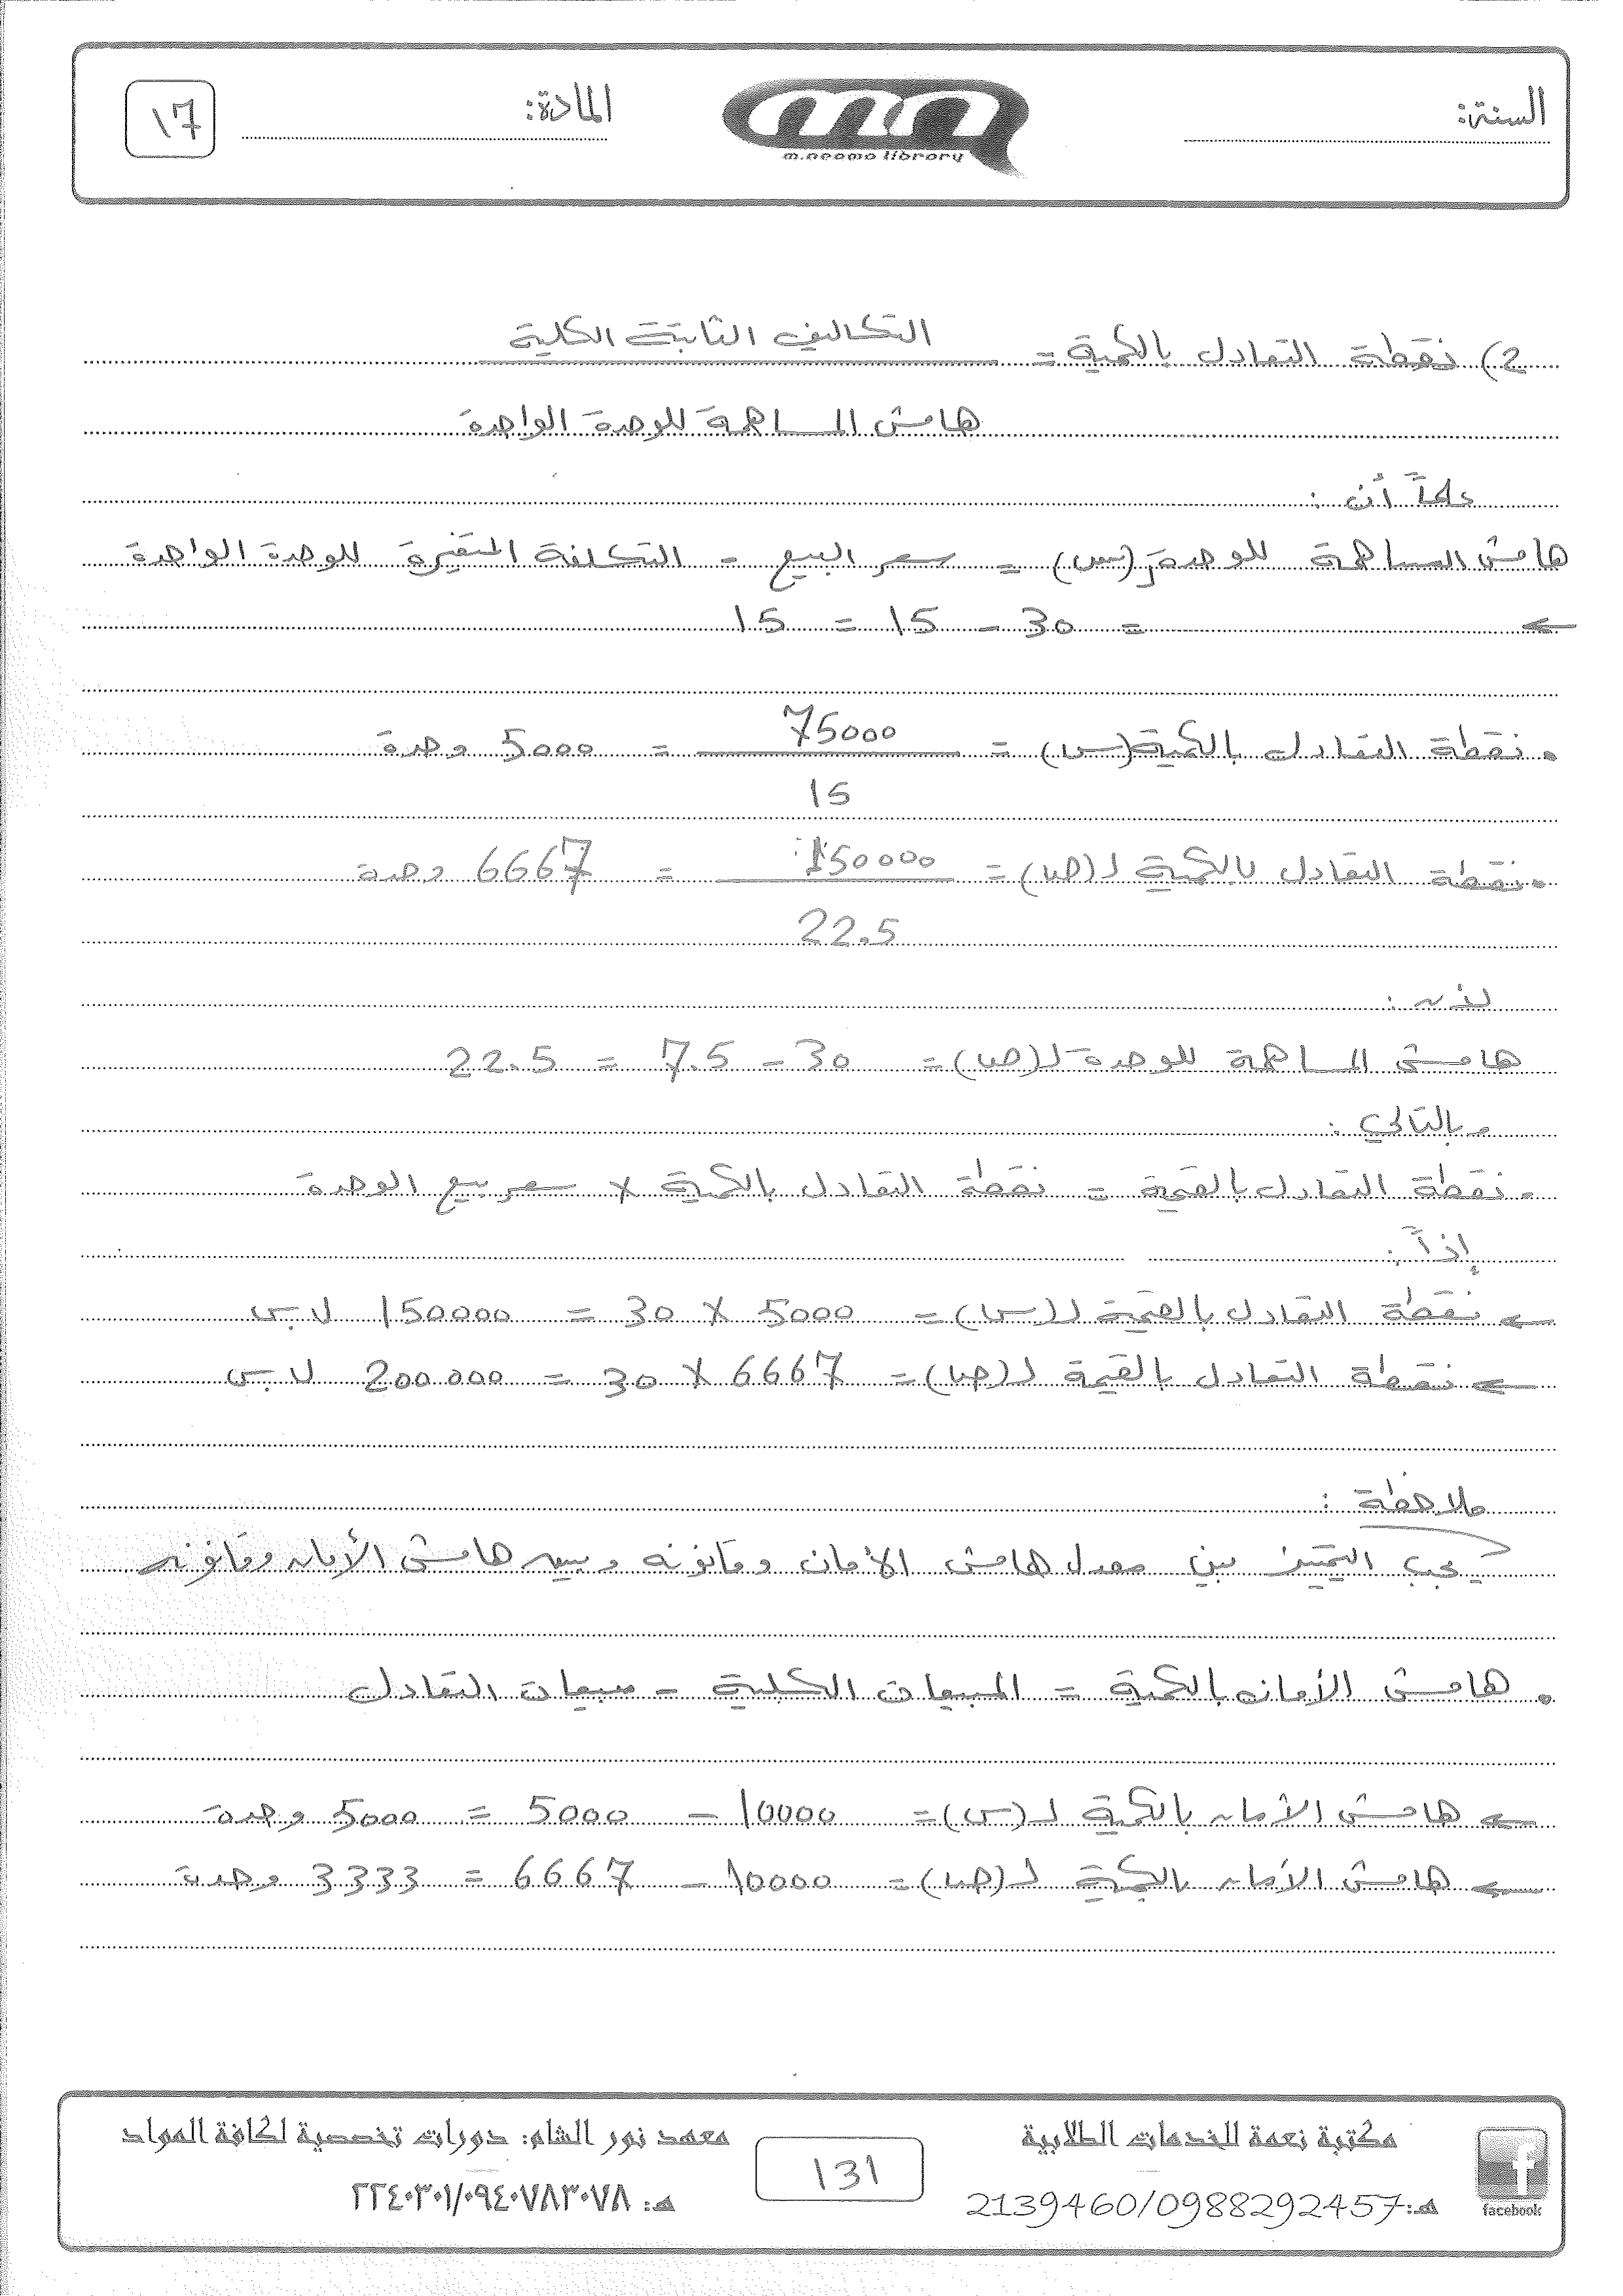 السنة:
m.neoma library
المادة:
17
2) نقطة التعادل بالكمية = التكاليف الثابتة الكلية
هامش المساهمة للوحدة الواحدة
علماً أن :
هامش المساهمة للوحدة (س) = سعر البيع - التكلفة المتغيرة للوحدة الواحدة
← = 30 - 15 = 15
• نقطة التعادل بالكمية (س) = 75000 = 5000 وحدة
15
• نقطة التعادل بالكمية لـ (ص) = 150000 = 6667 وحدة
22.5
لأنه :
هامش المساهمة للوحدة لـ (ص) = 30 - 7.5 = 22.5
وبالتالي :
• نقطة التعادل بالقيمة = نقطة التعادل بالكمية × سعر بيع الوحدة
إذاً :
← نقطة التعادل بالقيمة لـ (س) = 5000 × 30 = 150000 ل.س
← نقطة التعادل بالقيمة لـ (ص) = 6667 × 30 = 200000 ل.س
ملاحظة :
يجب التمييز بين معدل هامش الأمان وقانونه وبين هامش الأمان وقانونه
• هامش الأمان بالكمية = المبيعات الكلية - مبيعات التعادل
← هامش الأمان بالكمية لـ (س) = 10000 - 5000 = 5000 وحدة
← هامش الأمان بالكمية لـ (ص) = 10000 - 6667 = 3333 وحدة
facebook
مكتبة نعمة للخدمات الطلابية
هـ: 2139460/0988292457
131
معهد نور الشام: دورات تخصصية لكافة المواد
هـ: ٢٢٤٠٣٠١/٠٩٤٠٧٨٣٠٧٨